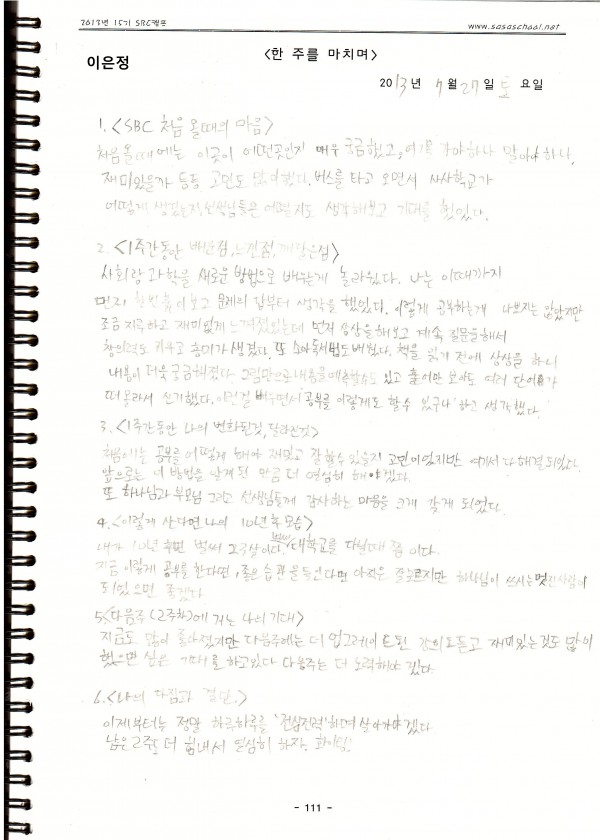 2013년 15기 SBC캠프
www.sasaschool.net
이은정
<한 주를 마치며>
2013년 7월 27일 토 요일
1. <SBC 처음 올때의 마음>
처음 올때에는 이곳이 어떤곳인지 매우 궁금했고, 여기를 가야하나 말아야 하나,
재미있을까 등등 고민도 많이했다. 버스를 타고 오면서 사사학교가
어떻게 생겼는지, 선생님들은 어떨지도 생각해보고 기대를 했었다.
2. <1주간동안 배운점, 느낀점, 깨달은점>
사회랑 과학을 새로운 방법으로 배우는게 놀라웠다. 나는 이때까지
먼저 한번 훑어보고 문제의 답부터 생각을 했었다. 이렇게 공부하는게 나쁘지는 않았지만
조금 지루하고 재미없게 느껴졌었는데 먼저 상상을해보고 계속 질문을해서
창의력도 키우고 흥미가 생겼다. 또 독서법도 배웠다. 책을 읽기 전에 상상을 하니
내용이 더욱 궁금해졌다. 그림만으로 내용을 예측할수도 있고 줄여만 보아도 여러 단어가
떠올라서 신기했다. 이런걸 배우면서 '공부를 이렇게도 할수 있구나' 하고 생각했다.
3. <1주간동안 나의 변화된것, 달라진것>
처음에는 공부를 어떻게 해야 재밌고 잘 할수 있을지 고민이었지만 여기서 다 해결되었다.
앞으로는 이 방법을 알게 된 만큼 더 열심히 해야겠다.
또 하나님과 부모님 그리고 선생님들께 감사하는 마음을 크게 갖게 되었다.
4. <이렇게 산다면 나의 10년후 모습>
내가 10년 후면 벌써 23살이다. 대학교를 다닐때 쯤 이다.
지금 이렇게 공부를 한다면, 좋은 습관을 들인다면 아직은 잘 모르지만 하나님이 쓰시는 멋진사람이
되었으면 좋겠다
5. <다음주 (2주차)에 거는 나의 기대>
지금도 많이 좋아졌지만 다음주에는 더 업그레이드된 강의도듣고 재미있는것도 많이
했으면 싶은 기대를 하고있다 다음주는 더 노력해야 겠다.
6. <나의 다짐과 결단.>
이제부터는 정말 하루하루를 '전심전력'하며 살아가야겠다
남은 2주도 더 힘내서 열심히 하자. 화이팅!
- 111 -